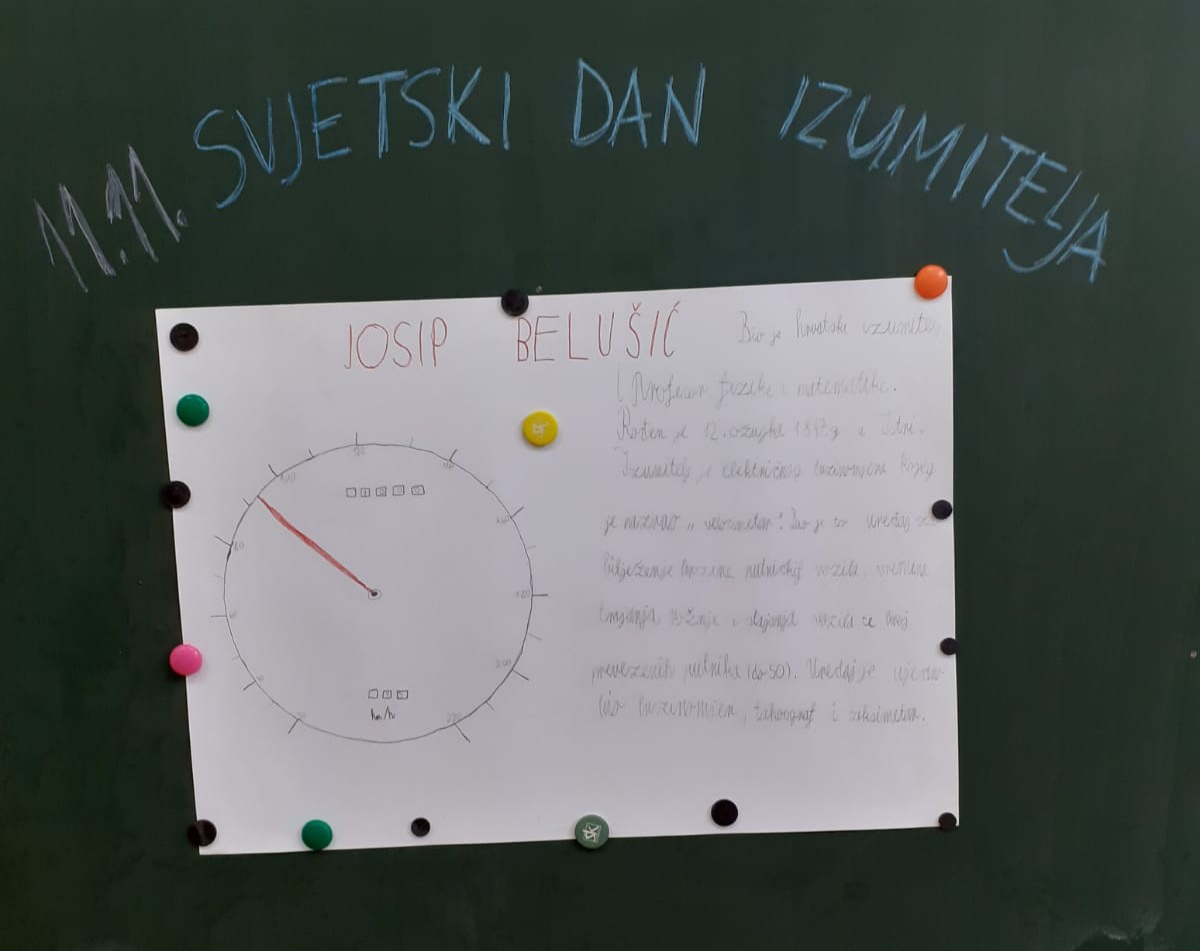 11.11. SVJETSKI DAN IZUMITELJA
JOSIP BELUŠIĆ
Bio je hrvatski izumitelj
i Profesor fizike i matematike.
Rođen je 12. ožujka 1847.g u Istri.
Izumitelj je električnog brzinomjera kojeg
je nazvao „velocimetar". Bio je to uređaj za
bilježenje brzine putničkih vozila, vremena
trajanja vožnje i stajanja vozila te broj
prevezenih putnika (do 50). Uređaj je ujedno
bio brzinomjer, tahograf i taksimetar.
100
80
180
200
220
km/h